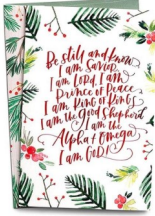 Be still and know
I am Savior,
I am Lord, I am
Prince of Peace
I am King of Kings
I am the Good Shepherd
I am the
Alpha + Omega
I am GOD!